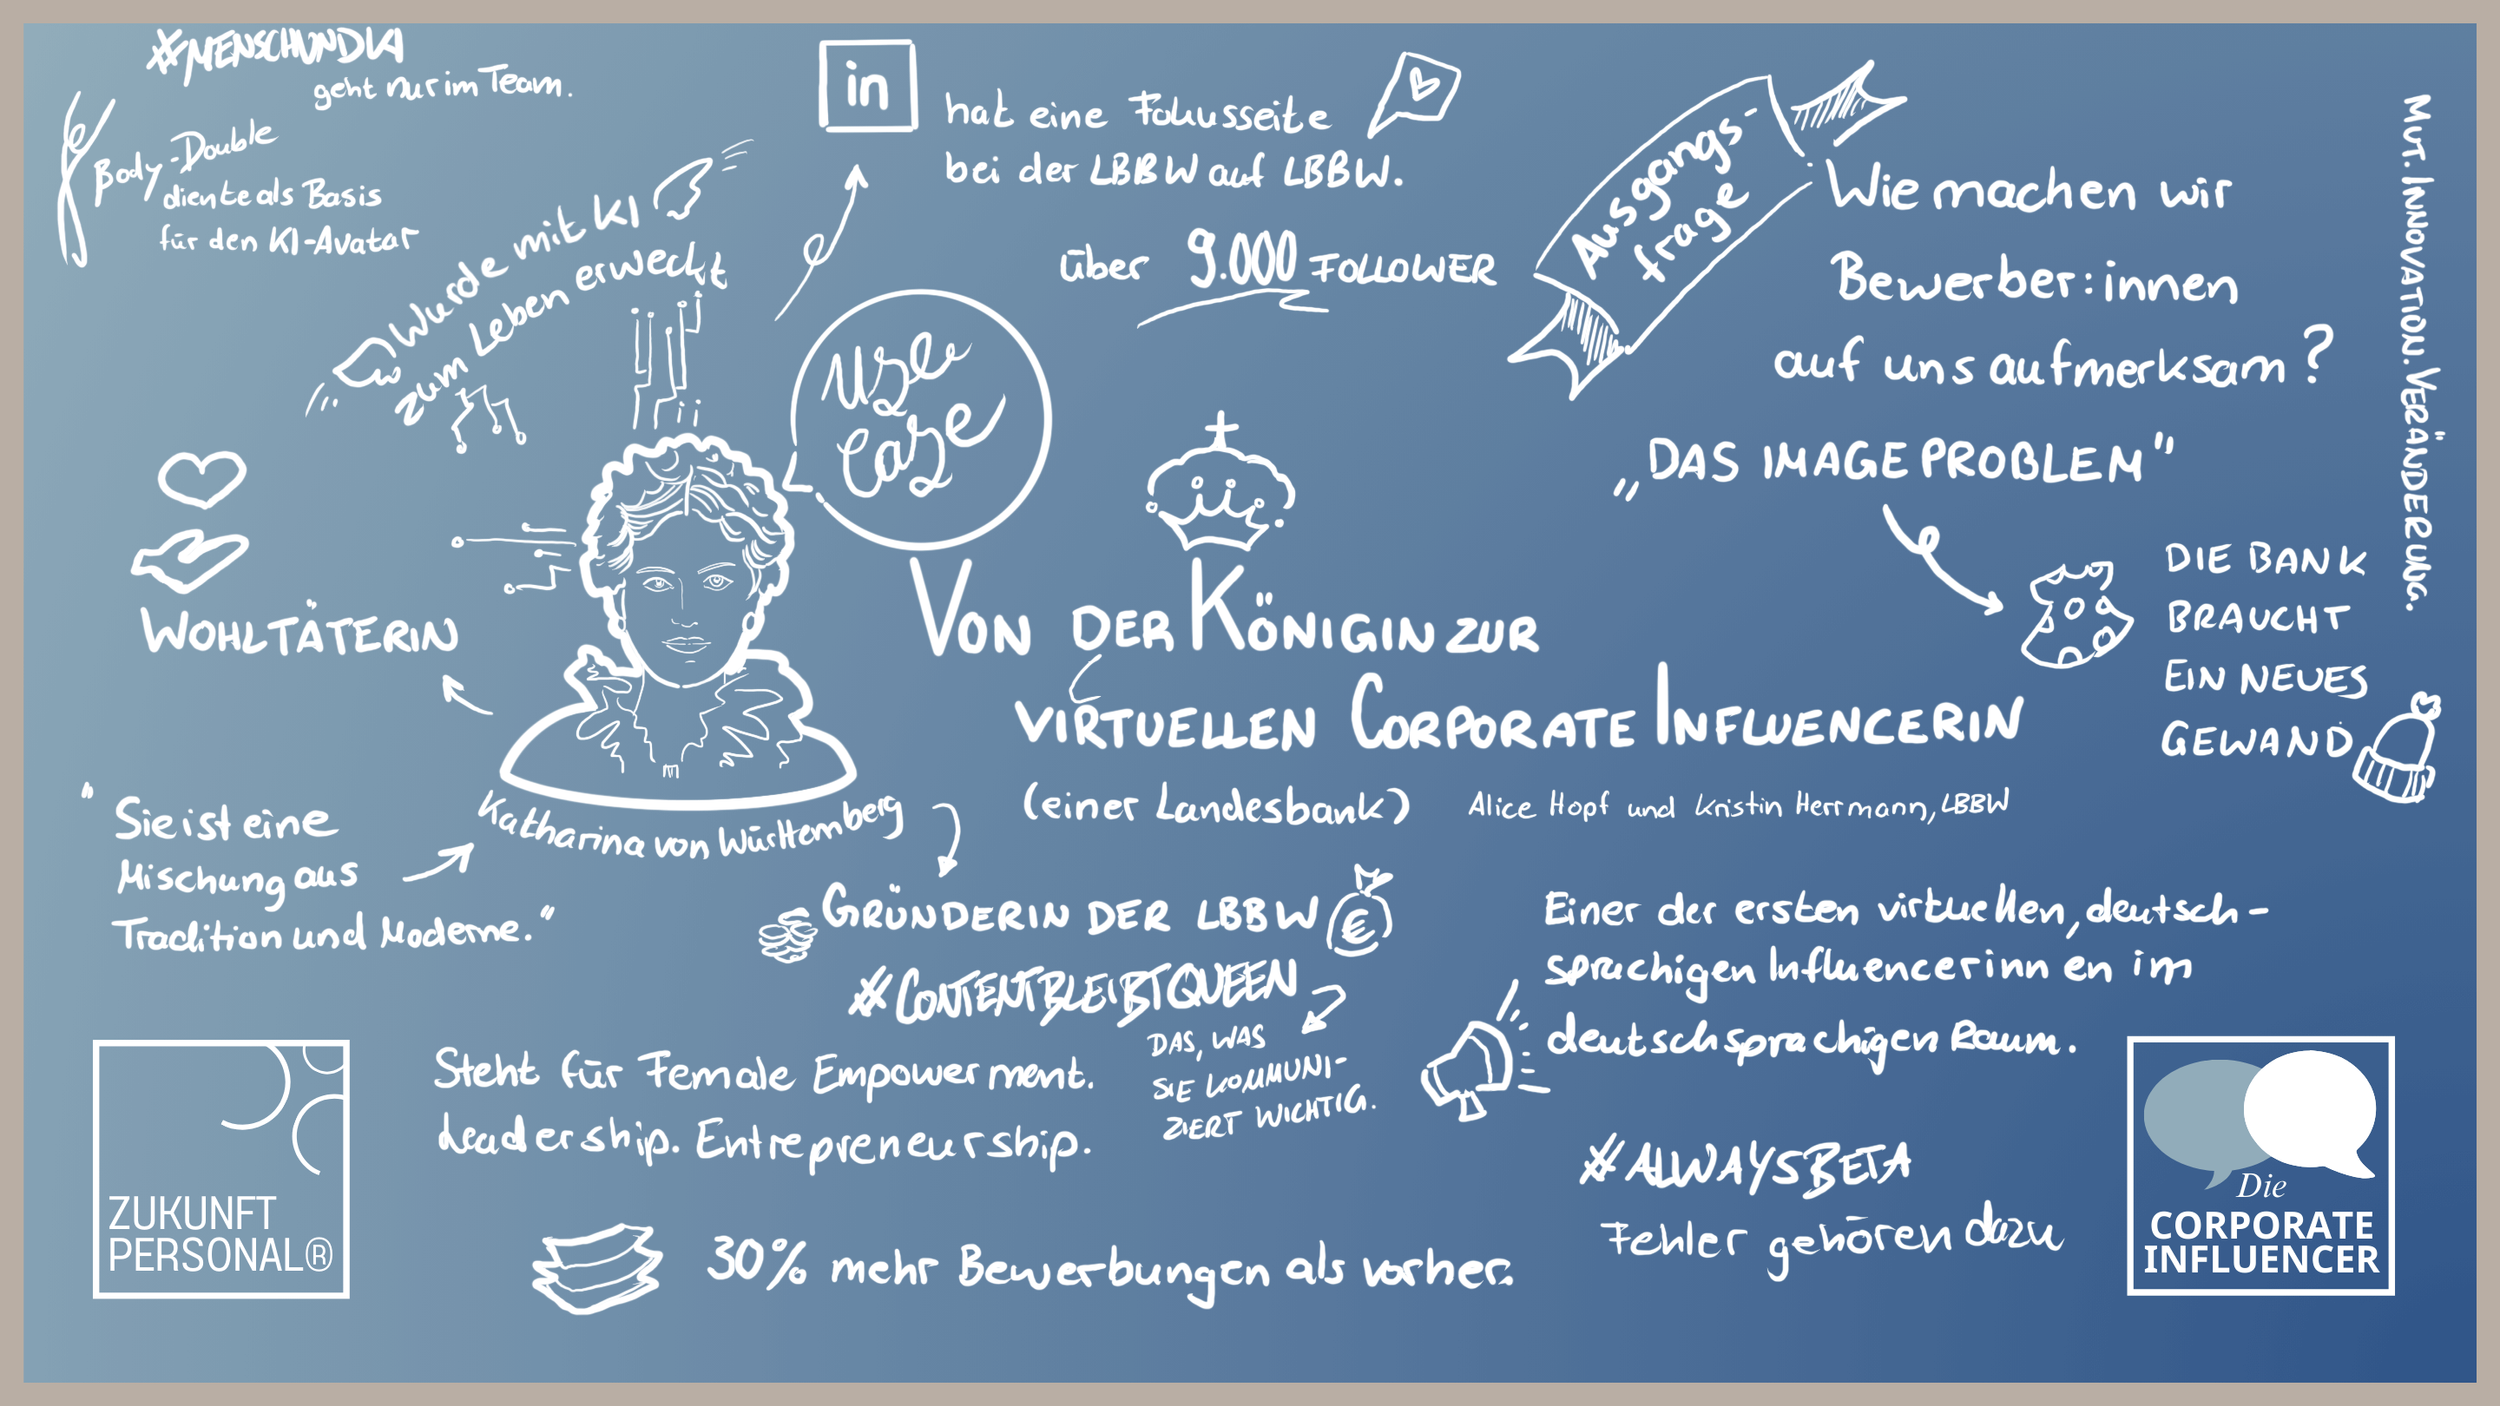 #MENSCHUNDKI
geht nur im Team.
Body-Double
diente als Basis
für den KI-Avatar
Wurde mit KI
zum Leben erweckt
in
hat eine Fokusseite
bei der LBBW auf LBBW.
über 9.000 FOLLOWER
Ausgangs-
frage
Wie machen wir
Bewerber:innen
auf uns aufmerksam?
„DAS IMAGEPROBLEM"
DIE BANK
BRAUCHT
EIN NEUES
GEWAND
MUT. INNOVATION. VERÄNDERUNG.
Use
Case
VON DER KÖNIGIN ZUR
VIRTUELLEN CORPORATE INFLUENCERIN
(einer Landesbank)
Alice Hopf und Kristin Herrmann, LBBW
WOHLTÄTERIN
"Sie ist eine
Mischung aus
Tradition und Moderne."
Katharina von Württemberg
GRÜNDERIN DER LBBW
€
#CONTENTBLEIBTQUEEN
DAS, WAS
SIE KOMMUNI-
ZIERT WICHTIG.
Einer der ersten virtuellen, deutsch-
sprachigen Influencerinnen im
deutschsprachigen Raum.
Steht für Female Empowerment.
Leadership. Entrepreneurship.
#ALWAYSBETA
Fehler gehören dazu
30% mehr Bewerbungen als vorher.
ZUKUNFT
PERSONAL®
Die
CORPORATE
INFLUENCER